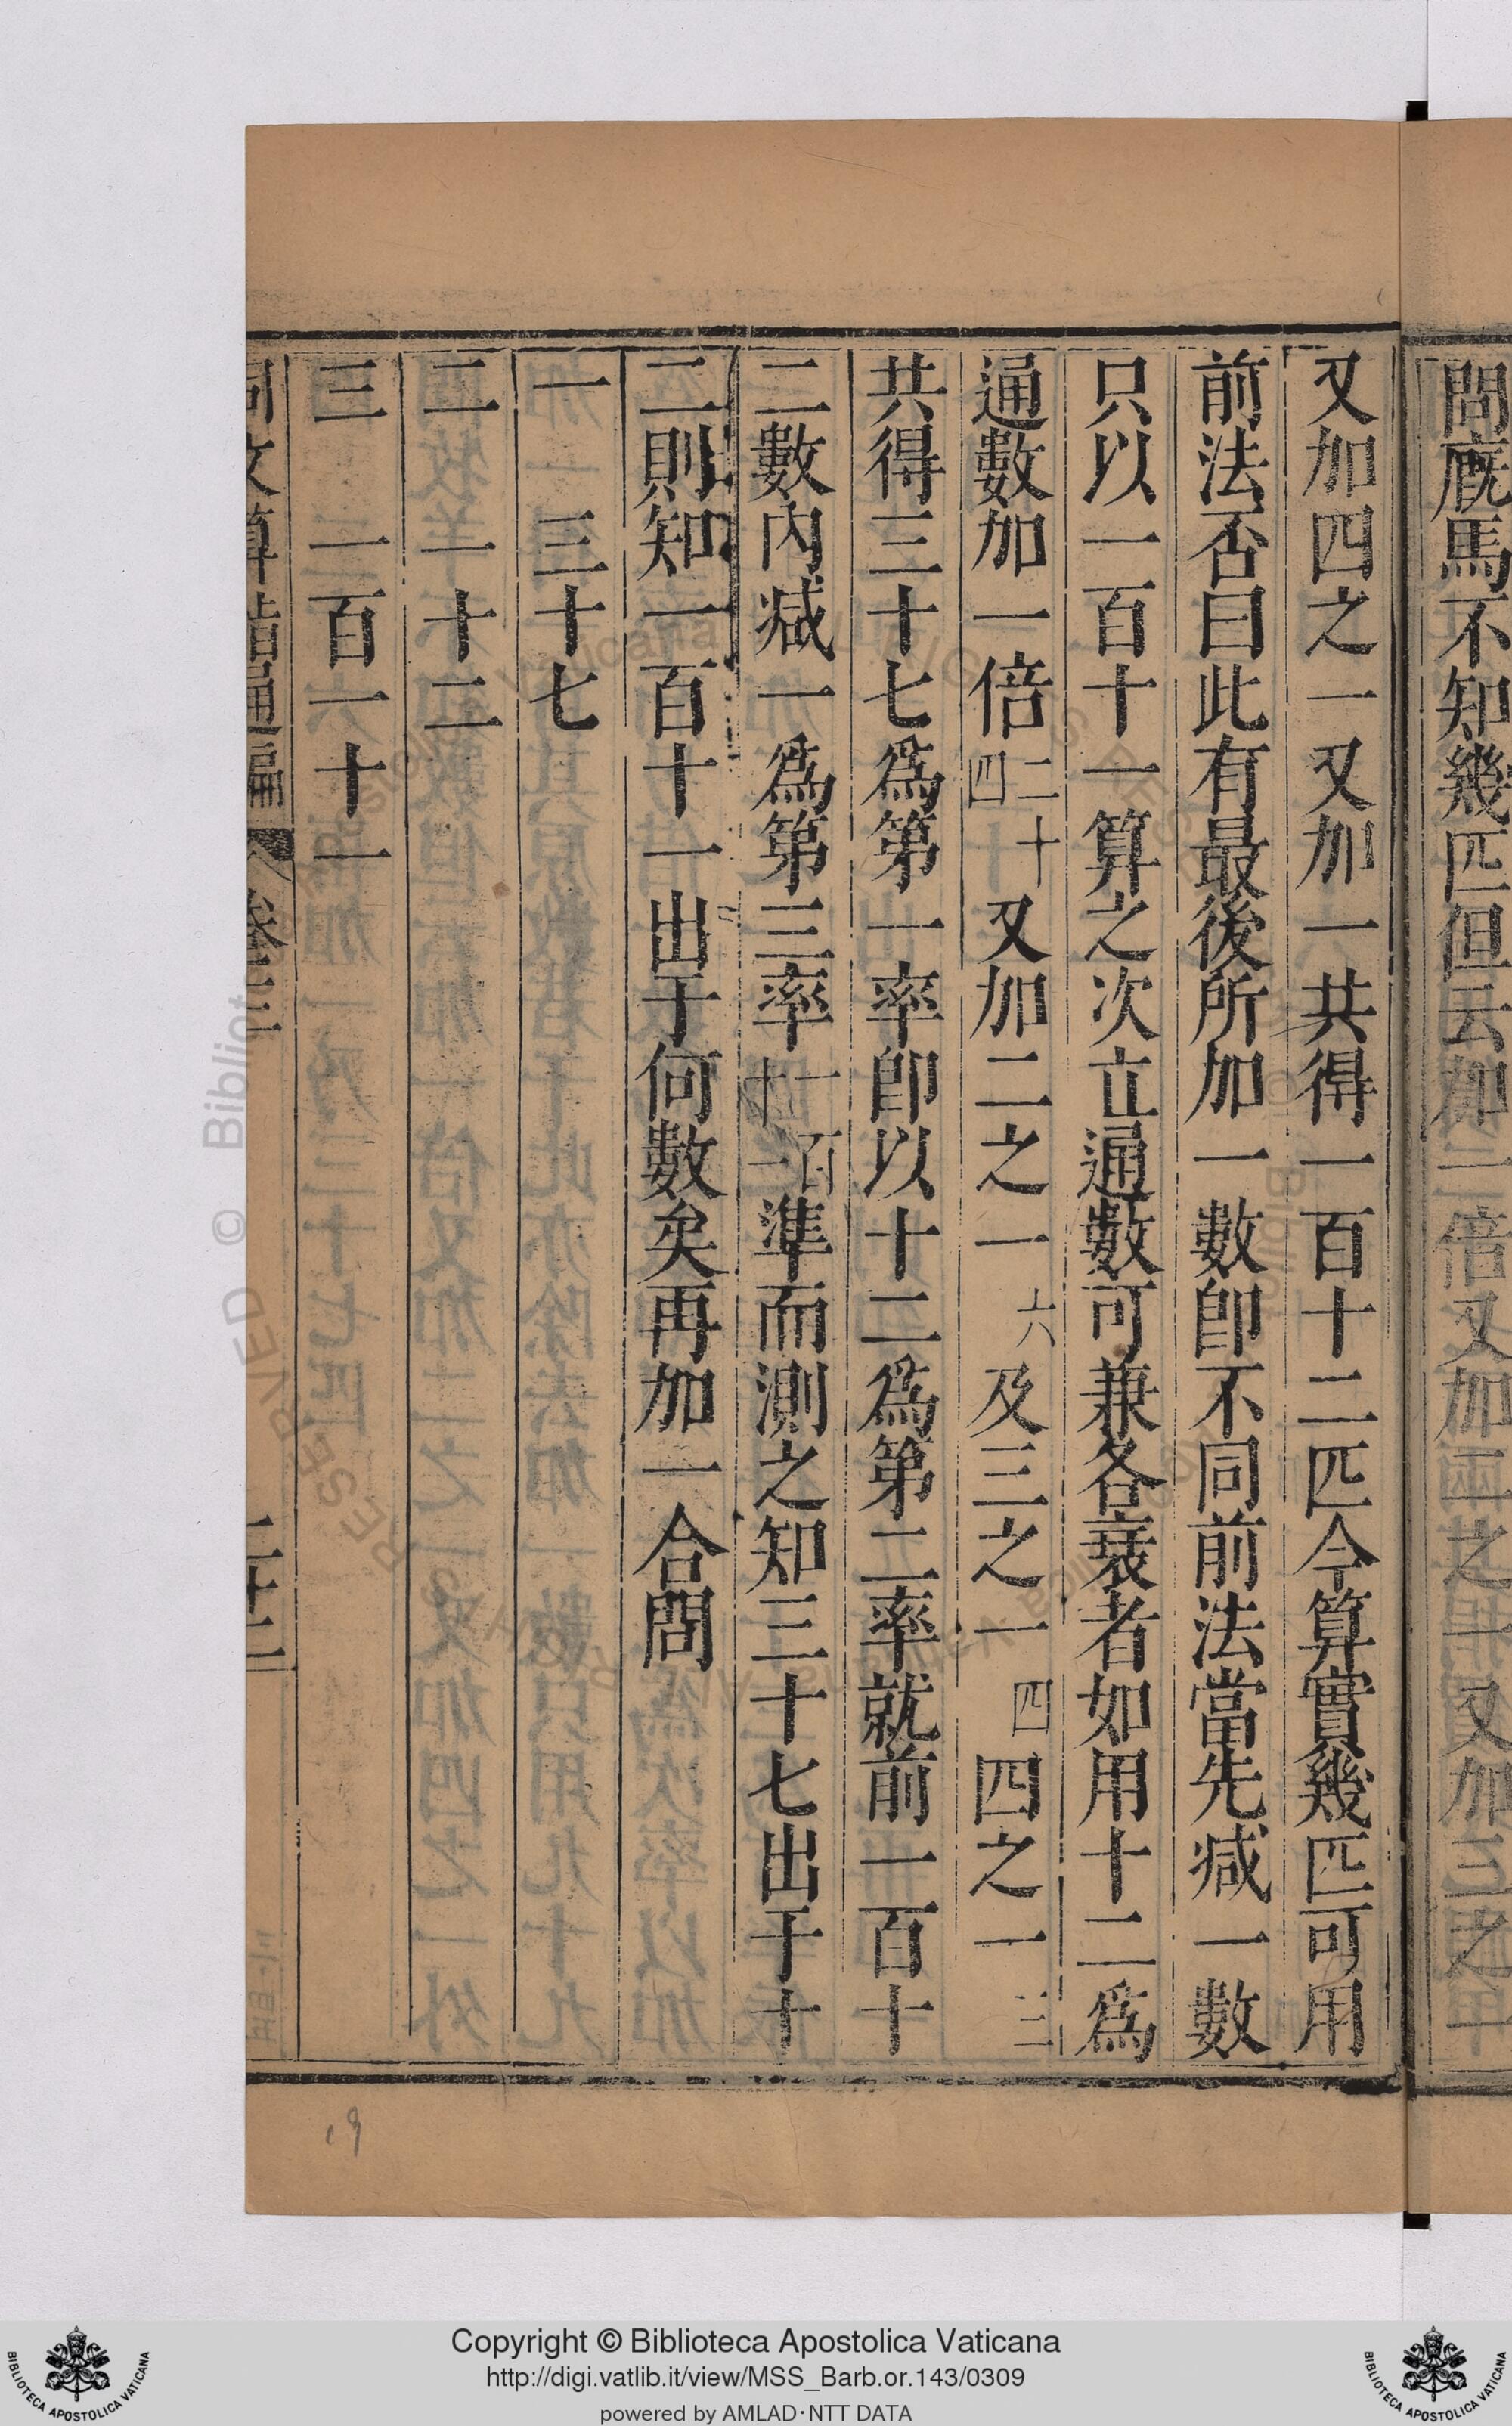 問廐馬不知幾匹但云加一倍又加二之一又加三之一
又加四之一又加一共得一百十二匹今算實幾匹可用
前法否曰此有最後所加一數卽不同前法當先减一數
只以一百十一算之次立通數可兼各衰者如用十二爲
通數加一倍二十四又加二之一六及三之一四四之一三
共得三十七爲第一率卽以十二爲第二率就前一百十
二數內减一爲第三率一百十一準而測之知三十七出于十
二則知一百十一出于何數矣再加一合問
一 三十七
二 十二
三 一百一十一
同文算指通編 卷三 二十二
19
© Bibliot
RESERVED
Copyright © Biblioteca Apostolica Vaticana
http://digi.vatlib.it/view/MSS_Barb.or.143/0309
powered by AMLAD·NTT DATA
BIBLIOTECA APOSTOLICA VATICANA
BIBLIOTECA APOSTOLICA VATICANA